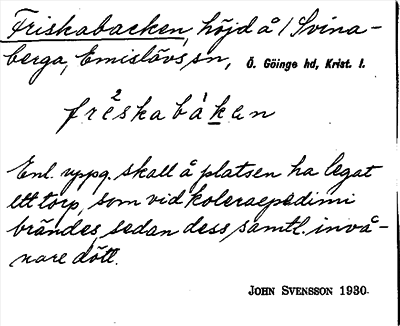 Friskabacken, höjd å / Svina-
berga, Emislövs sn, Ö. Göinge hd, Krist. l.
fre²skabá̀ken
Enl. uppg. skall å platsen ha legat
ett torp, som vid koleraepedimi
brändes, sedan dess samtl. invå-
nare dött.
JOHN SVENSSON 1930.